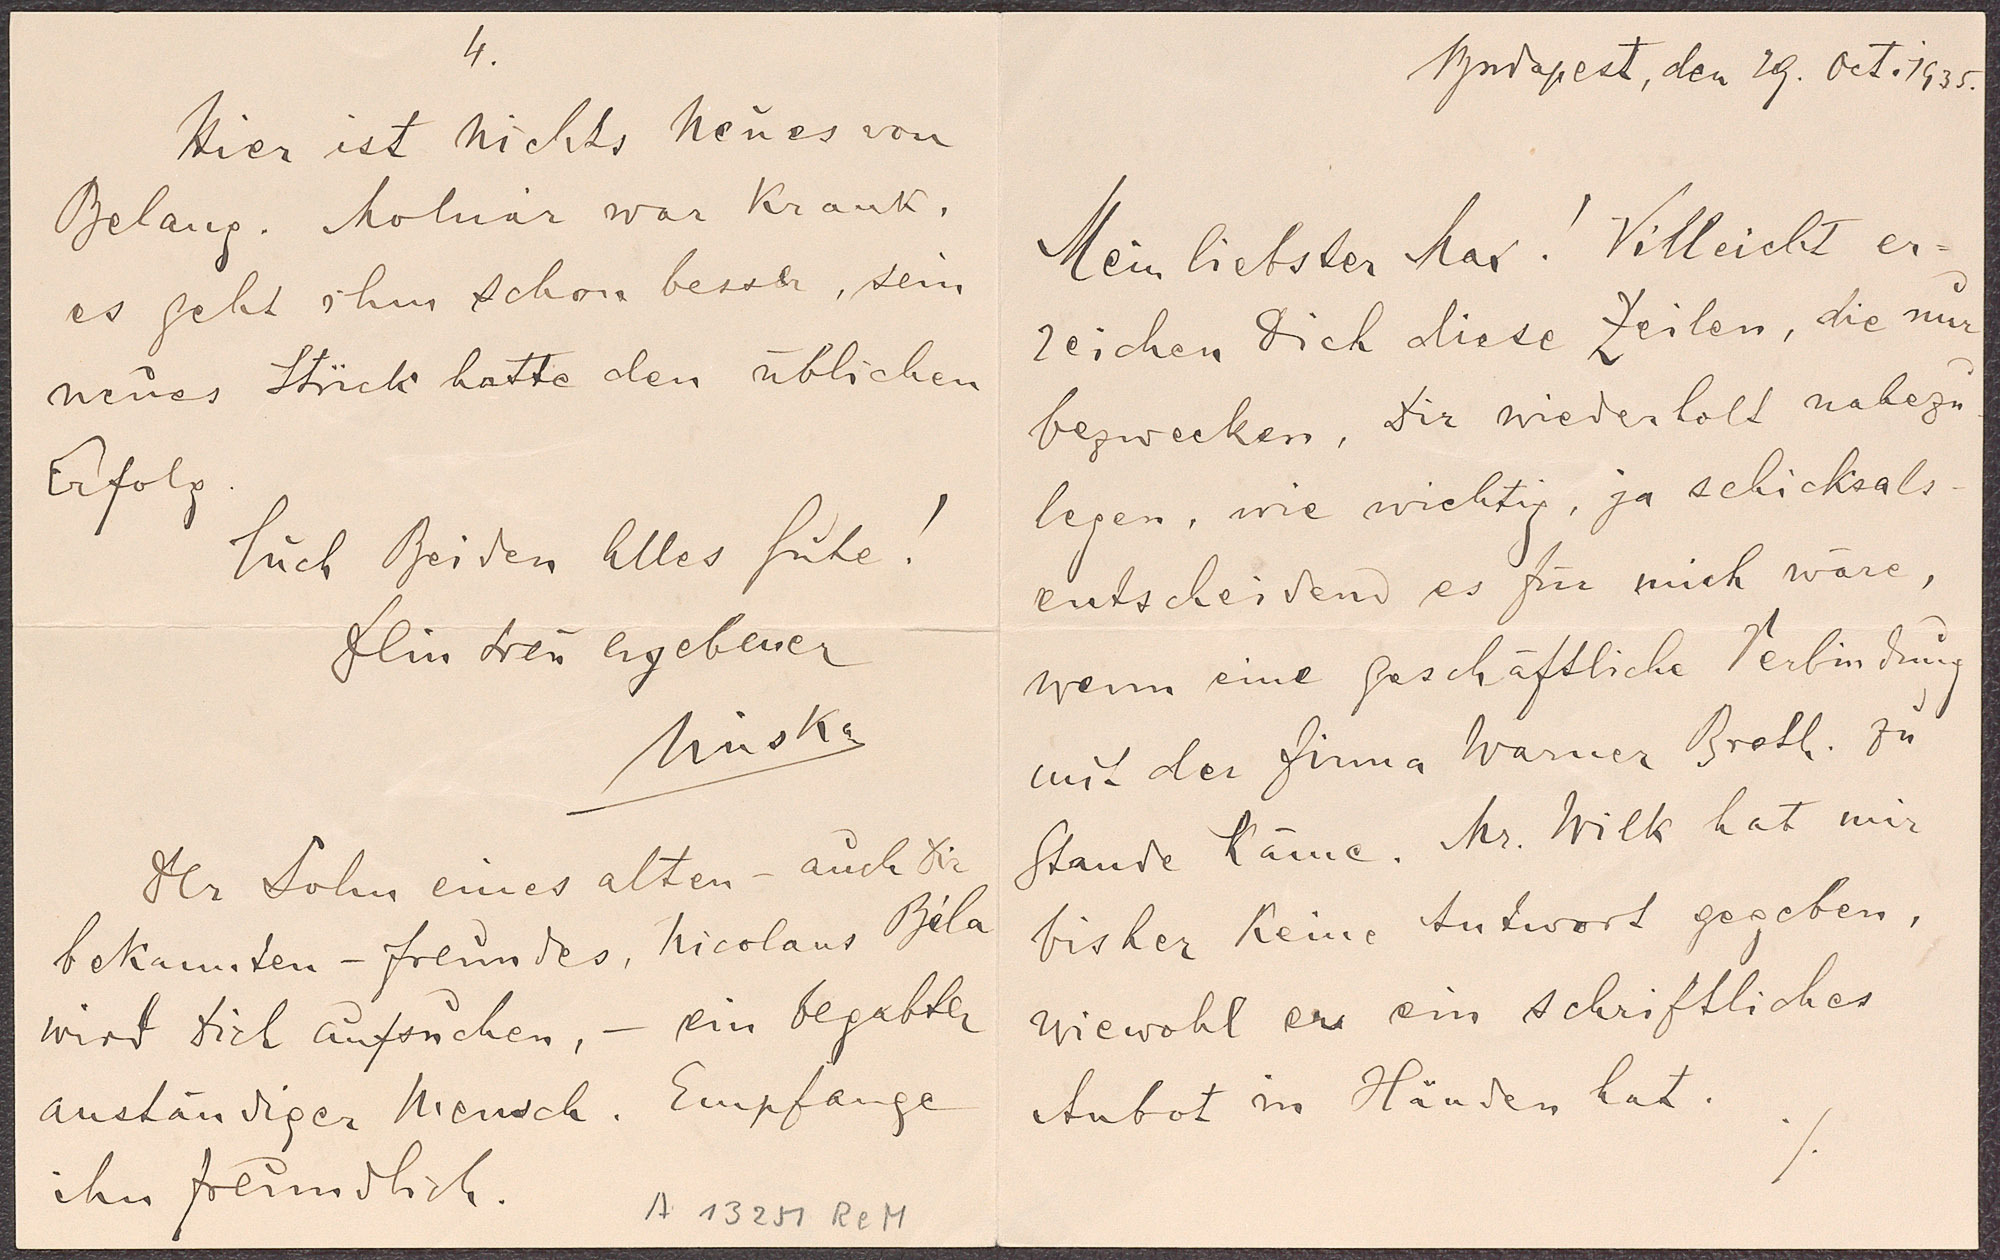 4.
Hier ist nichts Neues von
Belang. Molnár war krank.
es geht ihm schon besser, sein
neues Stück hatte den üblichen
Erfolg.
Euch Beiden Alles Gute!
Dein treu ergebener
Miska
Der Sohn eines alten – auch Dir
bekannten – Freundes, Nicolaus Béla
wird Dich aufsuchen, – ein begabter
anständiger Mensch. Empfange
ihn freundlich.
A 13251 ReM
Budapest, den 29. Oct. 1935.
Mein liebster Max! Villeicht er=
reichen Dich diese Zeilen, die nur
bezwecken, Dir wiederholt nahezu-
legen, wie wichtig, ja schicksals-
entscheidend es für mich wäre,
wenn eine geschäftliche Verbindung
mit der Firma Warner Broth. zu
Stande käme. Mr. Wilk hat mir
bisher keine Antwort gegeben,
wiewohl er ein schriftliches
Anbot in Händen hat.
./.